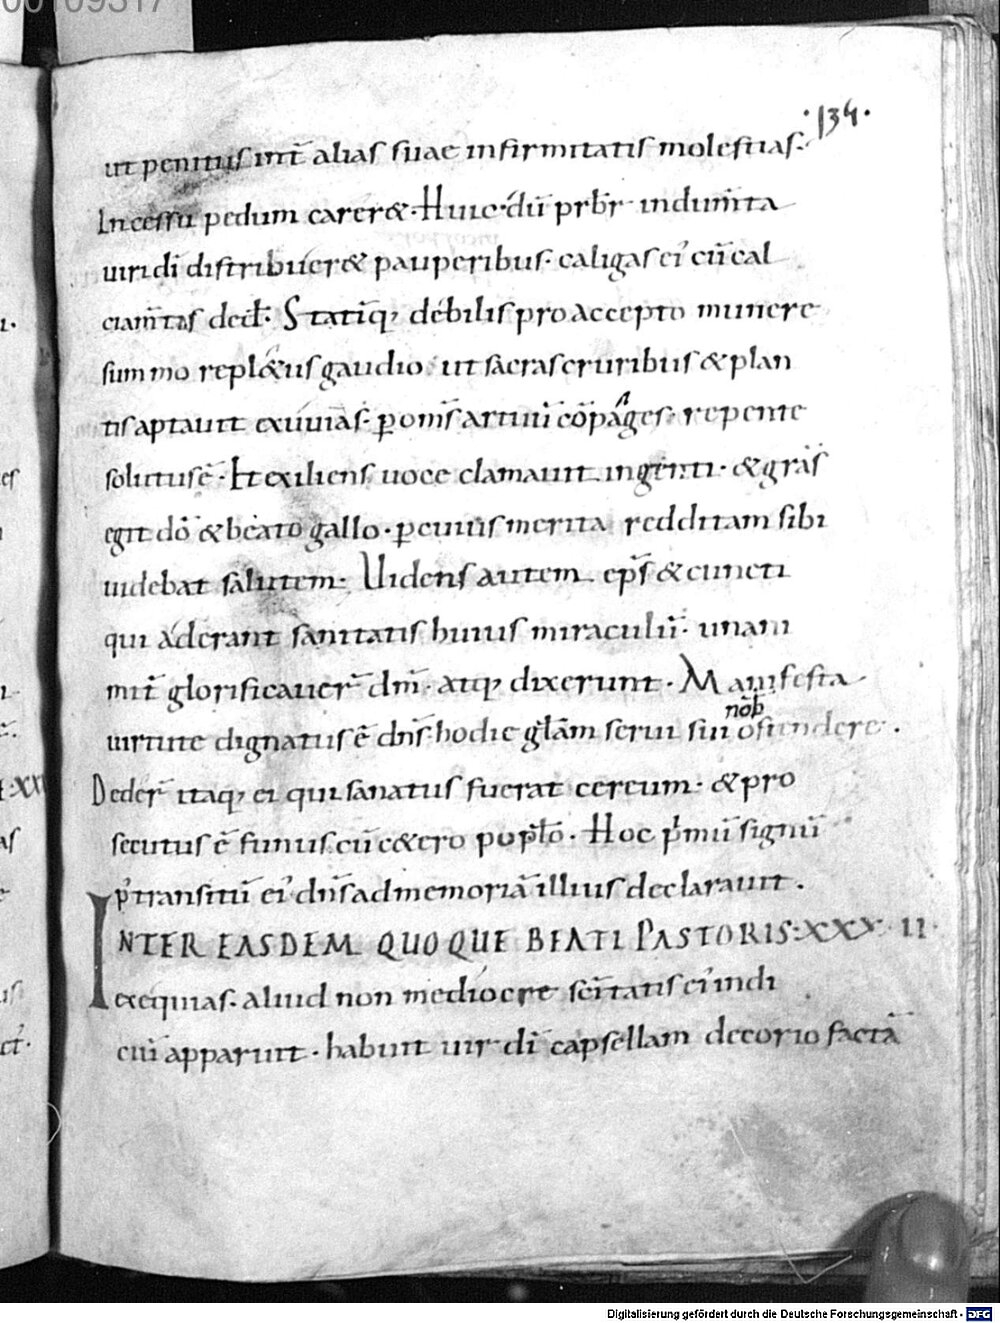 00109317
·134·
ut penitus int̄ alias suae infirmitatis molestias·
Incessu pedum careret· Huic dū prbr̄ indumīta
uiri dī distribueret pauperibus· caligas ei' cū cal
ciam̄tas dedit· Statīq; debilis pro accepto munere
summo repletus gaudio· ut sacras cruribus & plan
tis aptauit exuuias· p̄ om̄s artuū cōpages· repente
solutus ē· Et exiliens uoce clamauit ingenti· & grās
egit dō & beato gallo· p cuius merita redditam sibi
uidebat salutem· Uidens autem ep̄s & cuncti
qui aderant sanitatis huius miraculū· unani
mit̄ glorificauer̄ dm̄· atq; dixerunt· Manifesta
nōb
uirtute dignatus ē dn̄s hodie gl̄am serui sui ostendere·
Deder̄ itaq; ei qui sanatus fuerat cereum· & pro
secutus ē funus cū cetero poplo· Hoc p'mū signū
p' transitū ei' dn̄s ad memoriā illius declarauit·
INTER EASDEM QUOQUE BEATI PASTORIS·XXXII·
exequias· aliud non mediocre sc̄itatis ei' indi
ciū apparuit· habuit uir dī capsellam de corio factā